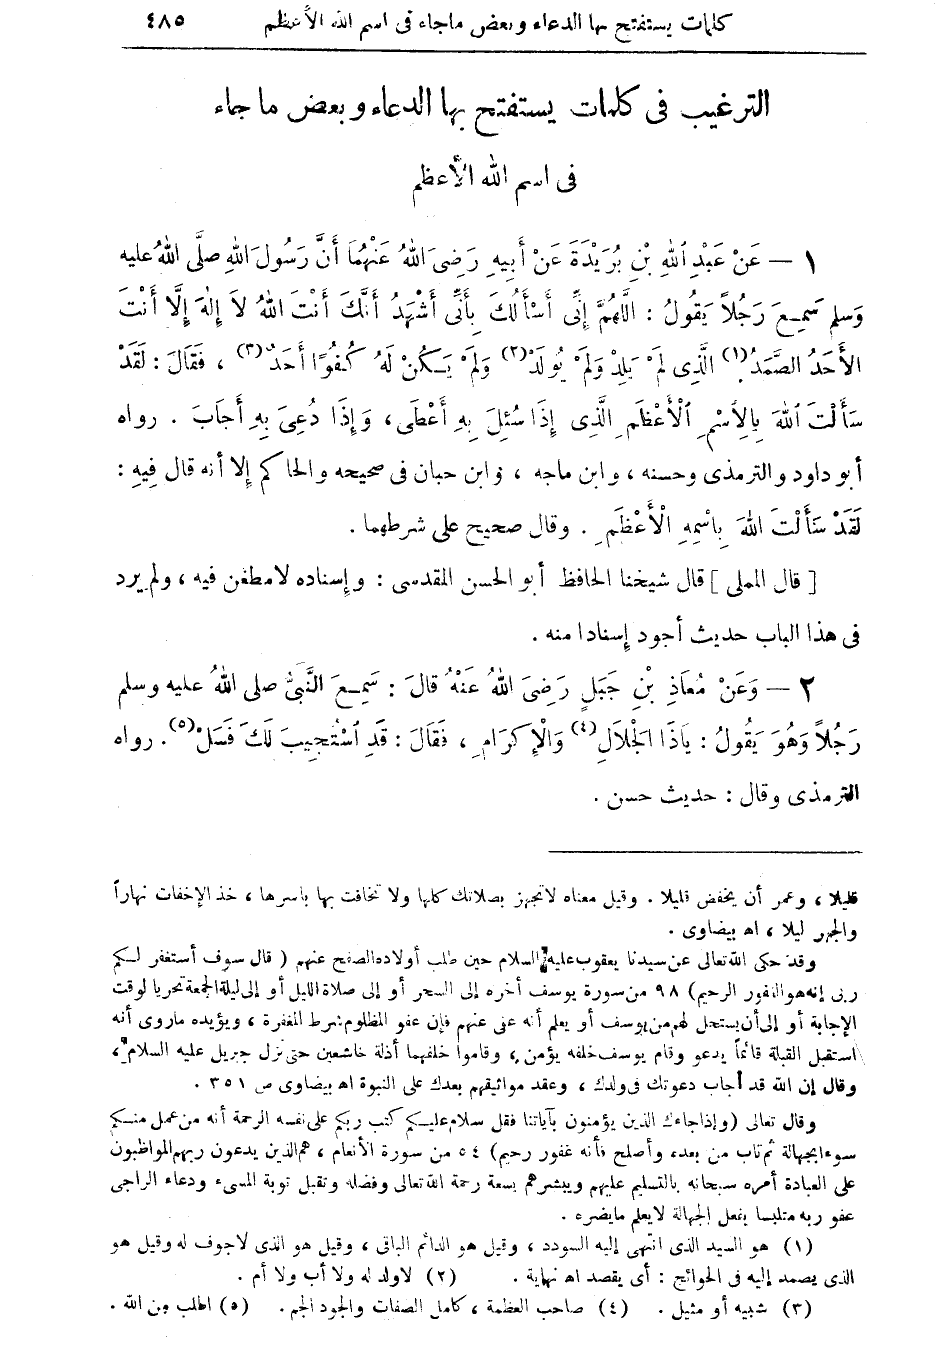 كلمات يستفتح بها الدعاء وبعض ماجاء فى اسم الله الأعظم ٤٨٥
الترغيب فى كلمات يستفتح بها الدعاء وبعض ماجاء
فى اسم الله الأعظم
١ — عَنْ عَبْدِ اللهِ بْنِ بُرَيْدَةَ عَنْ أَبِيهِ رَضِىَ اللهُ عَنْهُمَا أَنَّ رَسُولَ اللهِ صلَّى اللهُ عليه
وَسلم سَمِعَ رَجُلاً يَقُولُ : اللَّهُمَّ إِنِّى أَسْأَلُكَ بِأَنِّى أَشْهَدُ أَنَّكَ أَنْتَ اللهُ لاَ إِلٰهَ إِلَّا أَنْتَ
الأَحَدُ الصَّمَدُ(١) الَّذِى لَمْ يَلِدْ وَلَمْ يُولَدْ(٢) وَلَمْ يَكُنْ لَهُ كُفُوًا أَحَدٌ(٣) ، فَقَالَ : لَقَدْ
سَأَلْتَ اللهَ بِالِاسْمِ الْأَعْظَمِ الَّذِى إِذَا سُئِلَ بِهِ أَعْطَى ، وَإِذَا دُعِىَ بِهِ أَجَابَ . رواه
أبو داود والترمذى وحسنه ، وابن ماجه ، وابن حبان فى صحيحه والحاكم إلا أنه قال فِيهِ :
لَقَدْ سَأَلْتَ اللهَ بِاسْمِهِ الْأَعْظَمِ . وقال صحيح على شرطهما .
[ قال المملى ] قال شيخنا الحافظ أبو الحسن المقدسى : وإسناده لامطعن فيه ، ولم يرد
فى هذا الباب حديث أجود إسنادا منه .
٢ — وَعَنْ مُعَاذِ بْنِ جَبَلٍ رَضِىَ اللهُ عَنْهُ قَالَ : سَمِعَ النَّبِىُّ صلى اللهُ عليه وسلم
رَجُلاً وَهُوَ يَقُولُ : يَاذَا الْجَلَالِ(٤) وَالْإِكْرَامِ ، فَقَالَ : قَدِ اسْتُجِيبَ لَكَ فَسَلْ(٥) . رواه
الترمذى وقال : حديث حسن .
قليلا ، وعمر أن يخفض قليلا . وقيل معناه لاتجهر بصلاتك كلها ولا تخافت بها بأسرها ، خذ الإخفات نهاراً
والجهر ليلا ، اه بيضاوى .
وقد حكى الله تعالى عن سيدنا يعقوب عليه السلام حين طلب أولاده الصفح عنهم ( قال سوف أستغفر لكم
ربى إنه هو الغفور الرحيم ) ٩٨ من سورة يوسف أخره إلى السحر أو إلى صلاة الليل أو إلى ليلة الجمعة تحريا لوقت
الإجابة أو إلى أن يستحل لهم من يوسف أو يعلم أنه عفى عنهم فإن عفو المظلوم شرط المغفرة ، ويؤيده ماروى أنه
استقبل القبلة قائماً يدعو وقام يوسف خلفه يؤمن ، وقاموا خلفهما أذلة خاشعين حتى نزل جبريل عليه السلام ،
وقال إن الله قد أجاب دعوتك فى ولدك ، وعقد مواثيقهم بعدك على النبوة اه بيضاوى ص ٣٥١ .
وقال تعالى ( وإذا جاءك الذين يؤمنون بآياتنا فقل سلام عليكم كتب ربكم على نفسه الرحمة أنه من عمل منكم
سوءا بجهالة ثم تاب من بعده وأصلح فأنه غفور رحيم ) ٥٤ من سورة الأنعام ، هم الذين يدعون ربهم المواظبون
على العبادة أمره سبحانه بالتسليم عليهم ويبشرهم بسعة رحمة الله تعالى وفضله وتقبل توبة المسىء ودعاء الراجى
عفو ربه متلبسا بفعل الجهالة لايعلم مايضره .
(١) هو السيد الذى انتهى إليه السودد ، وقيل هو الدائم الباقى ، وقيل هو الذى لاجوف له وقيل هو
الذى يصمد إليه فى الحوائج : أى يقصد اه نهاية . (٢) لاولد له ولا أب ولا أم .
(٣) شبيه أو مثيل . (٤) صاحب العظمة ، كامل الصفات والجود الجم . (٥) اطلب من الله .